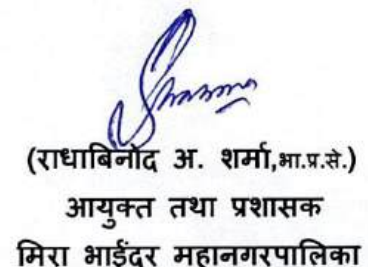 Sharma
(राधाबिनोद अ. शर्मा,भा.प्र.से.)
आयुक्त तथा प्रशासक
मिरा भाईंदर महानगरपालिका